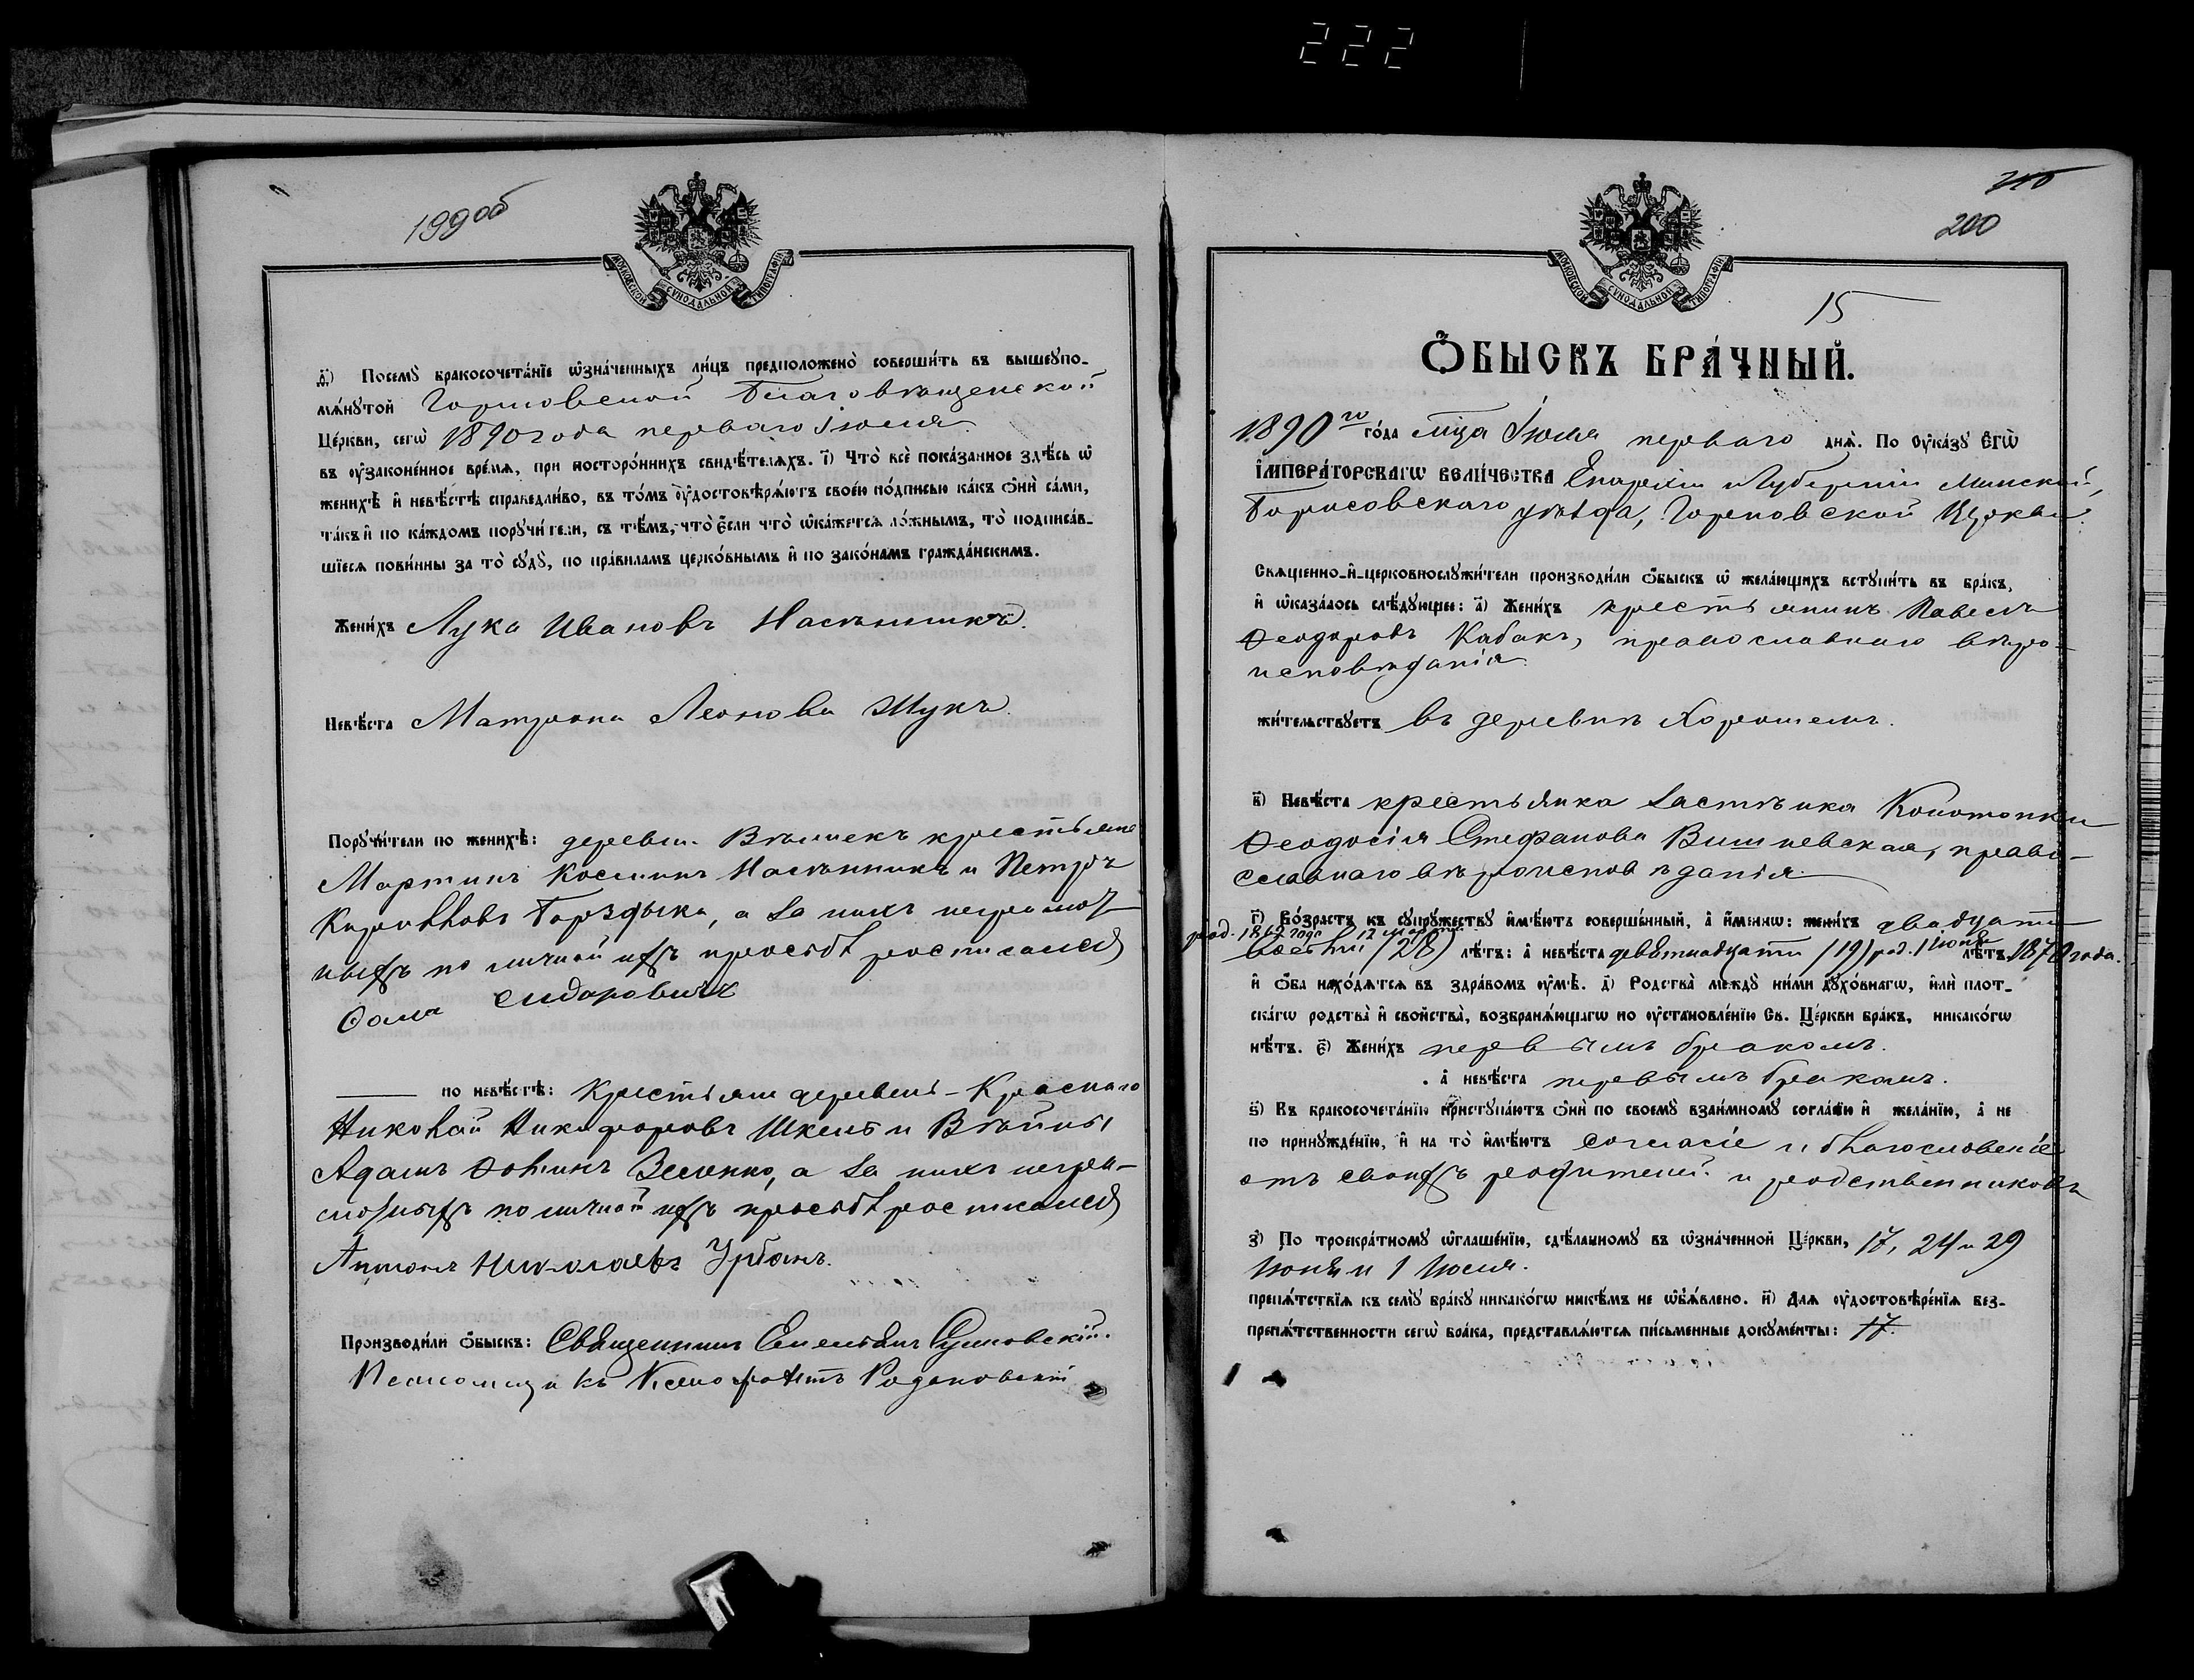 222
199об
МОСКОВСКОЙ СѴНОДАЛЬНОЙ ТИПОГРАФІИ
Посемꙋ̀ бракосочета́нїе ѡ҆зна́ченныхъ ли́цъ предположено̀ соверши́ть въ вышеꙋпо-
мѧ́нꙋтой Горковской Благовѣщенской
Це́ркви, сегѡ̀ 1890 года перваго Іюля
въ ᲂу҆зако́ненное вре́мѧ, при посторо́ннихъ свидѣ́телѧхъ. і҃) Что̀ всѐ пока́занное здѣ́сь ѡ҆
женихѣ̀ и҆ невѣ́стѣ справедли́во, въ то́мъ ᲂу҆достовѣрѧ́ютъ свое́ю по́дписью ка́къ ѻ҆нѝ са́ми,
та́къ и҆ по ка́ждомъ порꙋчи́тели, съ тѣ́мъ, что̀ є҆́сли что̀ ѡ҆ка́жетсѧ ло́жнымъ, то̀ подписа́в-
шїесѧ пови́нны за то̀ сꙋдꙋ̀, по пра́виламъ церко́внымъ и҆ по зако́намъ гражда́нскимъ.
Жени́хъ Лука Ивановъ
Невѣ́ста Матрона Леонова Шукъ.
Порꙋчи́тели по женихѣ̀: деревни крестьяне
Мартинъ Косминъ и Петръ
а за нихъ неграмот-
ныхъ по личной ихъ просьбѣ росписался
Фома Сидоровичъ
по невѣ́стѣ: Крестьяне деревень - Краснаго
Николай Никифоровъ и
Адамъ Фоминъ Зеленко, а за нихъ негра-
мотныхъ по личной ихъ просьбѣ росписался
Антонъ Николаевъ Урбанъ.
Производи́ли ѻ҆́быскъ: Священникъ Емельянъ
Псаломщикъ Ксенофонтъ
200
МОСКОВСКОЙ СѴНОДАЛЬНОЙ ТИПОГРАФІИ
15
Ѻ҆́БЫСКЪ БРА́ЧНЫЙ.
1890го го́да мца Іюля перваго днѧ̀. По ᲂу҆ка́зꙋ Є҆гѡ̀
І҆мпера́торскагѡ Вели́чества Епархіи и Губерніи Минской,
Борисовскаго уѣзда, Церкви
Свѧще́нно-и҆-церковнослꙋжи́тели производи́ли ѻ҆́быскъ ѡ҆ жела́ющихъ встꙋпи́ть въ бра́къ,
и҆ ѡ҆каза́лось слѣ́дꙋющее: а҃) Жени́хъ крестьянинъ Павелъ
Ѳеодоровъ Кабакъ, православнаго вѣро-
исповѣданія
жи́тельствꙋетъ въ деревнѣ Хорошемъ.
в҃) Невѣ́ста крестьянка застѣнка Конотопки
Ѳеодосія Стефанова Вишневская, право-
славнаго вѣроисповѣданія
г҃) Во́зрастъ къ сꙋпрꙋ́жествꙋ и҆мѣ́ютъ соверше́нный, а҆ и҆́меннѡ: жени́хъ двадцати
род. 1862 года 12 марта
восьми (28) лѣ́тъ: а҆ невѣ́ста девятнадцати (19) род. 1 Іюня лѣ́тъ. 1870 года.
и҆ ѻ҆́ба нахо́дѧтсѧ въ здра́вомъ ᲂу҆мѣ̀. д҃) Родства̀ междꙋ̀ ни́ми дꙋхо́внагѡ, и҆лѝ плот-
ска́гѡ родства̀ и҆ свойства̀, возбранѧ́ющагѡ по ᲂу҆становле́нїю Св. Це́ркви бра́къ, никако́гѡ
нѣ́тъ. є҃) Жени́хъ первымъ бракомъ.
а҆ невѣ́ста первымъ бракомъ.
ѕ҃) Къ бракосочета́нїю пристꙋпа́ютъ ѻ҆нѝ по своемꙋ̀ взаи́мномꙋ согла́сїю и҆ жела́нїю, а҆ не
по принꙋжде́нїю, и҆ на то̀ и҆мѣ́ютъ согласіе и благословеніе
отъ своихъ родителей и родственниковъ
з҃) По троекра́тномꙋ ѡ҆глаше́нїю, сдѣ́ланномꙋ въ ѡ҆зна́ченной Це́ркви, 17, 24 и 29
Іюня и 1 Іюля.
препѧ́тствїѧ къ семꙋ̀ бра́кꙋ никако́гѡ никѣ́мъ не ѡ҆б̾ѧ́влено. и҃) Длѧ ᲂу҆достовѣре́нїѧ без-
препѧ́тственности сегѡ̀ бра́ка, представлѧ́ютсѧ пи́сьменные докꙋме́нты: 17.